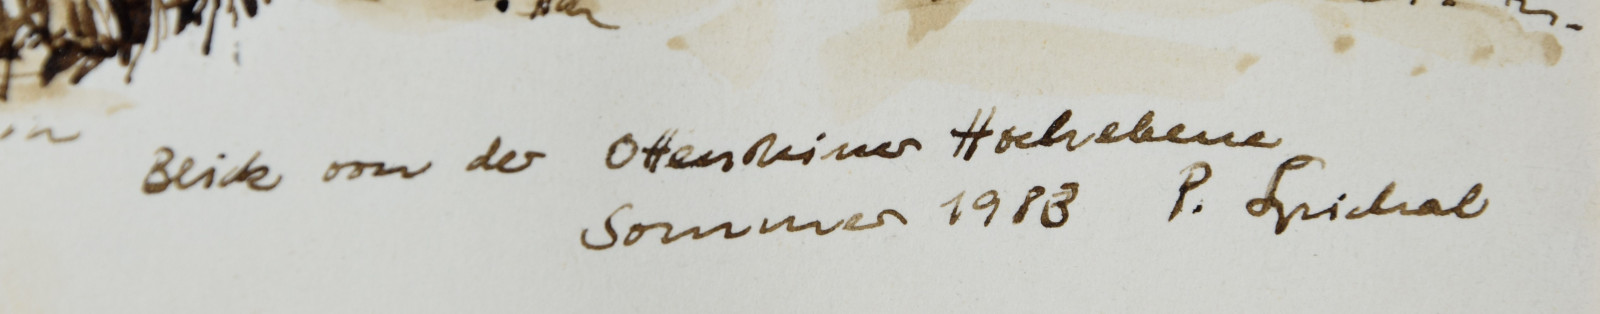 Blick von der Ottensteiner Hochebene
Sommer 1983 P. Spichal